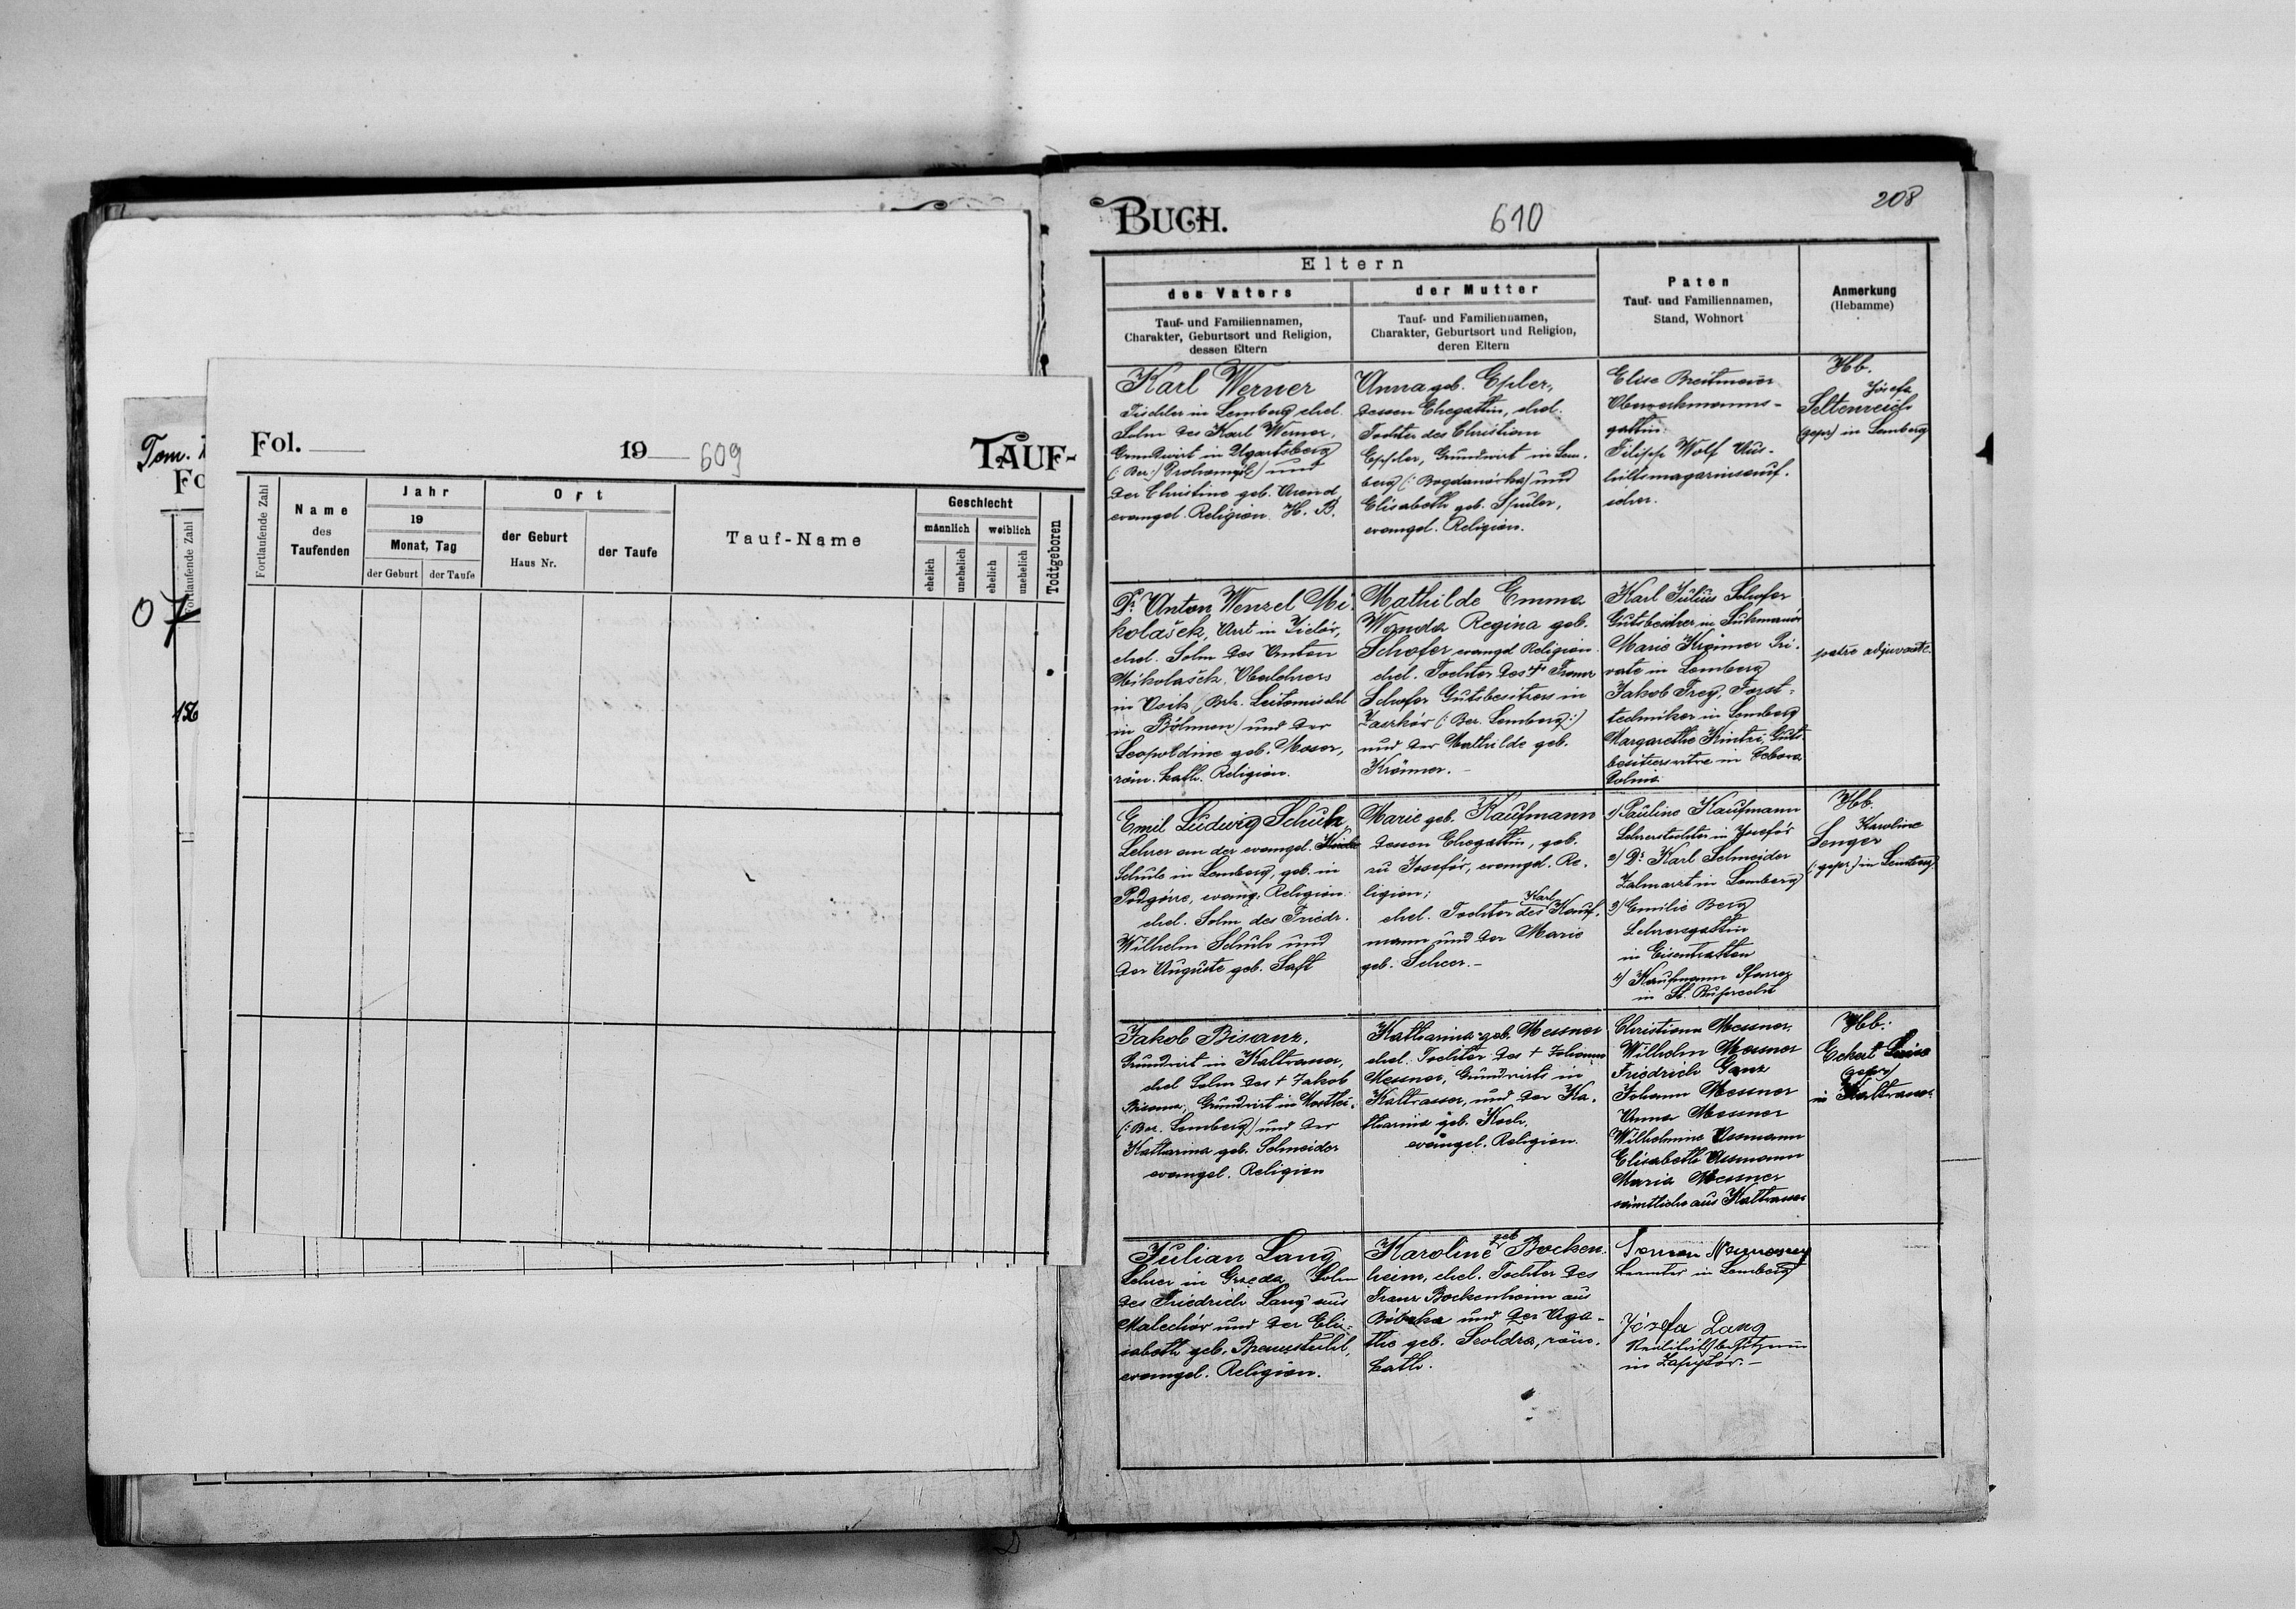 Tom.
Fo
Fortlaufende Zahl
07
156
Fol.
19
609
TAUF-
Fortlaufende Zahl
Name
des
Taufenden
Jahr
19
Monat, Tag
der Geburt
der Taufe
Ort
der Geburt
Haus Nr.
der Taufe
Tauf-Name
Geschlecht
männlich
weiblich
ehelich
unehelich
ehelich
unehelich
Todtgeboren
BUCH.
610
208
Eltern
des Vaters
Tauf- und Familiennamen,
Charakter, Geburtsort und Religion,
dessen Eltern
der Mutter
Tauf- und Familiennamen,
Charakter, Geburtsort und Religion,
deren Eltern
Paten
Tauf- und Familiennamen,
Stand, Wohnort
Anmerkung
(Hebamme)
Karl Werner
Tischler in Lemberg ehel.
Sohn des Karl Werner,
Grundwirt in Ugartsberg
(: Bez. :) und
der Christine geb. Arend,
evangel. Religion. H. B.
Anna geb. Epler,
dessen Ehegattin, ehel.
Tochter des Christian
Eppler, Grundwirt in Lem-
berg (: Bogdanówka) und
Elisabeth geb. Spuler,
evangel. Religion.
Elise Breitmeier
gattin.
Filipp Wolf Aus-
hilfsmagazinsauf-
seher.
Hb.
Josefa
Seltenreich
(gepr.) in Lemberg
Dr. Anton Wenzel Mi-
kolašek, Arzt in
ehel. Sohn des Anton
Mikolašek, Oberlehrers
in Osik (Bez. Leitomischl
in Böhmen) und der
Leopoldine geb. Moser,
röm. kath. Religion.
Mathilde Emma
Wanda Regina geb.
Schofer evangel Religion.
ehel. Tochter des † Franz
Schofer Gutsbesitzers in
Zaszków (: Bez. Lemberg :)
und der Mathilde geb.
Krämer. -
Karl Julius Schofer
Gutsbesitzer in
Marie Krämer Pri-
vate in Lemberg
Jakob Frey, Forst-
techniker in Lemberg
Margarethe Kintzi, Guts-
in
patre adjuvante.
Emil Ludwig Schulz,
Lehrer an der evangel. Kirche
Schule in Lemberg, geb. in
Podgórze, evang. Religion.
ehel. Sohn des Friedr.
Wilhelm Schulz und
der Auguste geb. Saft
Marie geb. Kaufmann
dessen Ehegattin, geb.
zu Josefór, evangel. Re-
ligion;
Karl
ehel. Tochter des Kauf-
mann und der Marie
geb. Scheer. -
1) Pauline Kaufmann
Lehrerstochter in Josefór
2) Dr. Karl Schneider
Zahnarzt in Lemberg
3) Emilie Berg
Lehrersgattin
in Eisentratten
4) Kaufmann Pfarrer
in St. Ruprecht
Hb.
Karoline
Senger
(: gepr.) in Lemberg.
Jakob Bisanz,
Grundwirt in Kaltwasser,
ehel Sohn des † Jakob
Bisanz, Grundwirt in
(: Bez. Lemberg) und der
Katharina geb. Schneider
evangel. Religion
Katharina geb. Messner
ehel. Tochter des † Johann
Messner, Grundwirts in
Kaltwasser, und der Ka-
tharina geb. Koch,
evangel. Religion.
Christiana Messner,
Wilhelm Messner
Friedrich Ganz
Johann Messner
Anna Messner
Wilhelmine Assmann
Elisabeth Assmann
Maria Messner
sämtliche aus Kaltwasser
Hb:
Eckert Luise
(gepr)
in Kaltwasser.
Julian Lang
Lehrer in Grzęda, Sohn
des Friedrich Lang aus
Malechów und der Eli-
sabeth geb.
evangel. Religion.
geb
Karoline Bocken-
heim, ehel. Tochter des
Franz Bockenheim aus
Bóbrka und der Aga-
the geb. röm.
kath.
Beamter in Lemberg
Józefa Lang
Realitätsbesitzerin
in